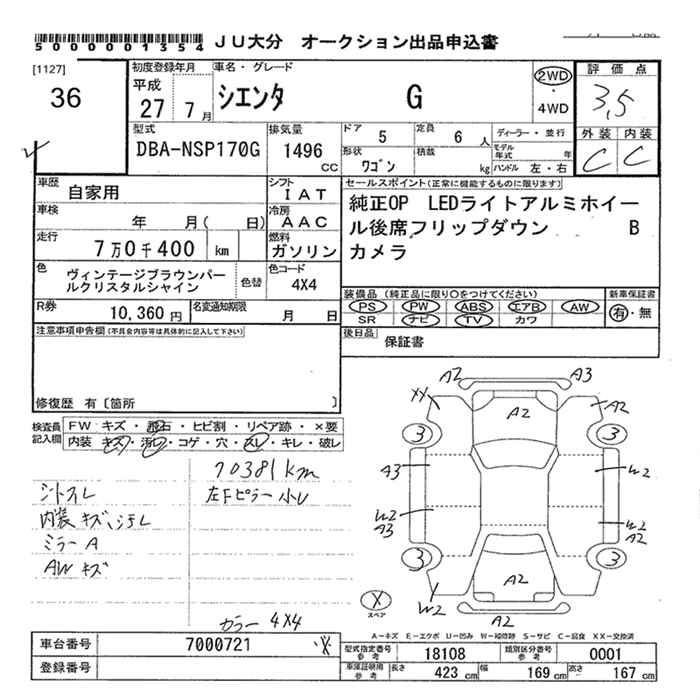 5000001354 JU大分 オークション出品申込書
[1127]
36
初度登録年月
平成
27 7 月
車名・グレード
シエンタ G
2WD
・
4WD
評価点
3,5
外装 内装
C C
型式
DBA-NSP170G
排気量
1496
CC
ドア 5
定員 6 人
形状 ワゴン
積載 kg
ディーラー・並行
モデル年式 年
ハンドル 左・右
車歴 自家用
シフト IAT
車検 年 月( 日)
冷房 AAC
走行 7万0千400 km
燃料 ガソリン
色 ヴィンテージブラウンパールクリスタルシャイン
色替
色コード 4X4
R券 10,360 円
名変通知期限 月 日
セールスポイント(正常に機能するものに限ります)
純正OP LEDライトアルミホイー
ル後席フリップダウン B
カメラ
装備品 (純正品に限り○をつけてください)
PS PW ABS エアB AW
SR ナビ TV カワ
新車保証書
有・無
後日品 保証書
注意事項申告欄(不具合内容等は具体的に記入して下さい)
修復歴 有〔箇所 〕
検査員記入欄
FW キズ・飛石・ヒビ割・リペア跡・×要
内装 キズ・汚レ・コゲ・穴・スレ・キレ・破レ
70381km
シートスレ
左Fピラー小U
内装キズ、汚レ
ミラーA
AWキズ
カラー 4X4
A2 A3
XX A2 A2
3 3
A3 W2
W2 W2
A3 A2
3 3
A2
W2 A2
X
スペア
A-キズ E-エクボ U-凹み W-補修跡 S-サビ C-腐食 XX-交換済
車台番号 7000721
登録番号
型式指定番号 参考 18108
類別区分番号 参考 0001
車庫証明用 参考 長さ 423 cm 幅 169 cm 高さ 167 cm